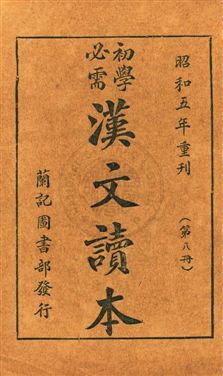 昭和五年重刊
（第八冊）
初學
必需
漢文讀本
蘭記圖書部發行